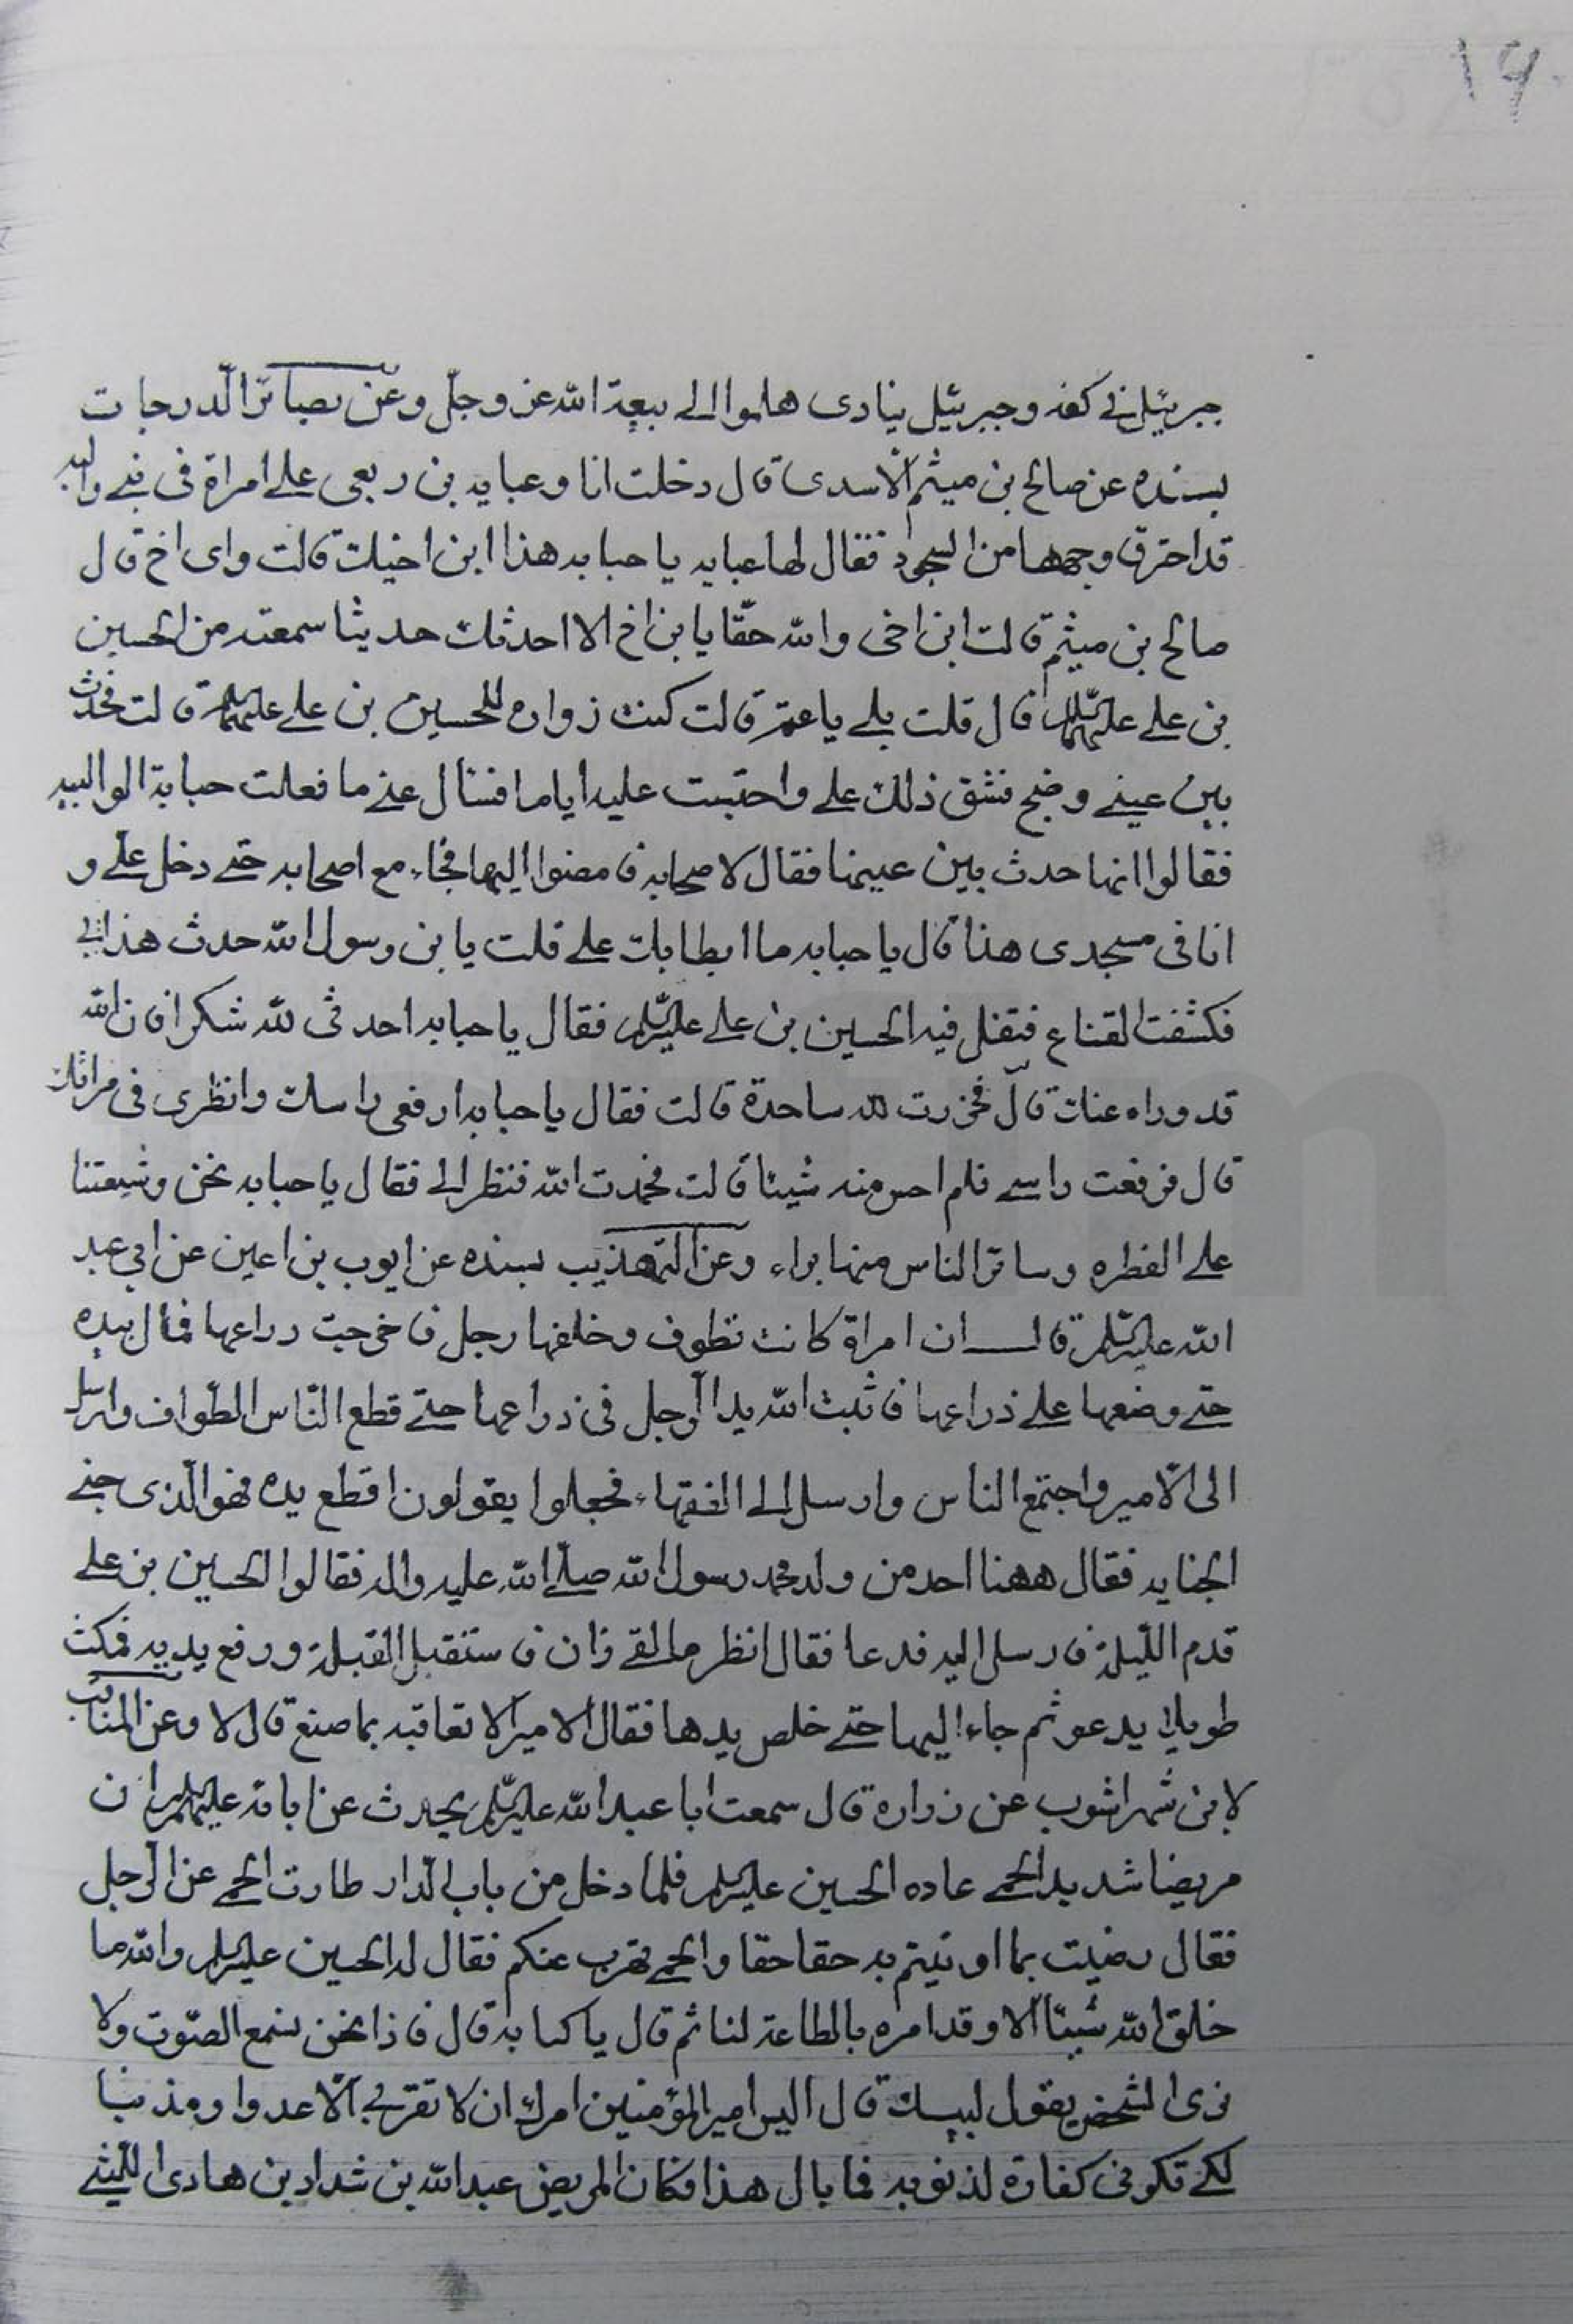 ١٩
جبرئيل في كفه وجبرئيل ينادى هلموا الى بيعة الله عز وجلّ وعن بصائر الدرجات
بسنده عن صالح بن ميثم الاسدى قال دخلت انا وعبايه بن ربعى على امراة فى بنى والبه
قد احترق وجهها من السجود فقال لها عبايه يا حبابه هذا ابن اخيك قالت واى اخ قال
صالح بن ميثم قالت ابن اخى والله حقّا يا بن اخ الا احدثك حديثا سمعته من الحسين
بن على عليهما السلام قال قلت بلى يا عمة قالت كنت زواره للحسين بن على عليهما السلام قالت فحدث
بين عينى وضح فشق ذلك على واحتبست عليه اياما فسال عنى ما فعلت حبابة الوالبيه
فقالوا انها حدث بين عينها فقال لاصحابه قامضوا اليها فجاء مع اصحابه حتى دخل علّى و
انا فى مسجدى هذا قال يا حبابه ما ابطا بك على قلت يا بن رسول الله حدث هذا بى
فكشفت القناع فتفل فيه الحسين بن على عليه السلام فقال يا حبابه احدثى لله شكرا فان الله
قد دراه عنك قال فخررت لله ساجدة قالت فقال يا حبابه ارفعى راسك وانظرى فى مراتك
قال فرفعت راسى فلم احس منه شيئا قالت فحمدت الله فنظر الى فقال يا حبابه نحن وشيعتنا
على الفطره وسائر الناس منها براء وعن التهذيب بسنده عن ايوب بن اعين عن ابي عبد
الله عليه السلام قال ان امراة كانت تطوف وخلفها رجل فاخرجت دراعها فمال بيده
حتى وضعها على ذراعها فاثبت الله يد الرجل فى ذراعها حتى قطع النّاس الطّواف وارسل
الى الامير واجتمع الناس وارسل الى الفقهاء فجعلوا يقولون اقطع يده فهو الّذى جنى
الجنايه فقال ههنا احد من ولد محمد رسول الله صلّى الله عليه واله فقالوا الحسين بن على
قدم الليلة فارسل اليه فدعا فقال انظر ما لقى ذان فاستقبل القبلة ورفع يديه فمكث
طويلا يدعو ثم جاء اليها حتى خلص يدها فقال الامير الا تعاقبه بما صنع قال لا وعن المناقب
لابن شهراشوب عن زراره قال سمعت ابا عبد الله عليه السلام يحدث عن ابائه عليهم السلام ان
مريضا شديد الحمى عاده الحسين عليه السلام فلما دخل من باب الدار طارت الحمى عن الرجل
فقال رضيت بما اوتيتم به حقا حقا والحمى تهرب عنكم فقال له الحسين عليه السلام والله ما
خلق الله شيئا الّا وقد امره بالطاعة لنا ثم قال يا كبابه قال فاذا نحن نسمع الصّوت ولا
نرى الشخص يقول لبيك قال اليس امير المؤمنين امرك ان لا تقربى الّا عدوا ومذنبا
لكى تكونى كفارة لذنوبه فما بال هذا فكان المريض عبد الله بن شداد بن هادى اللّيثى